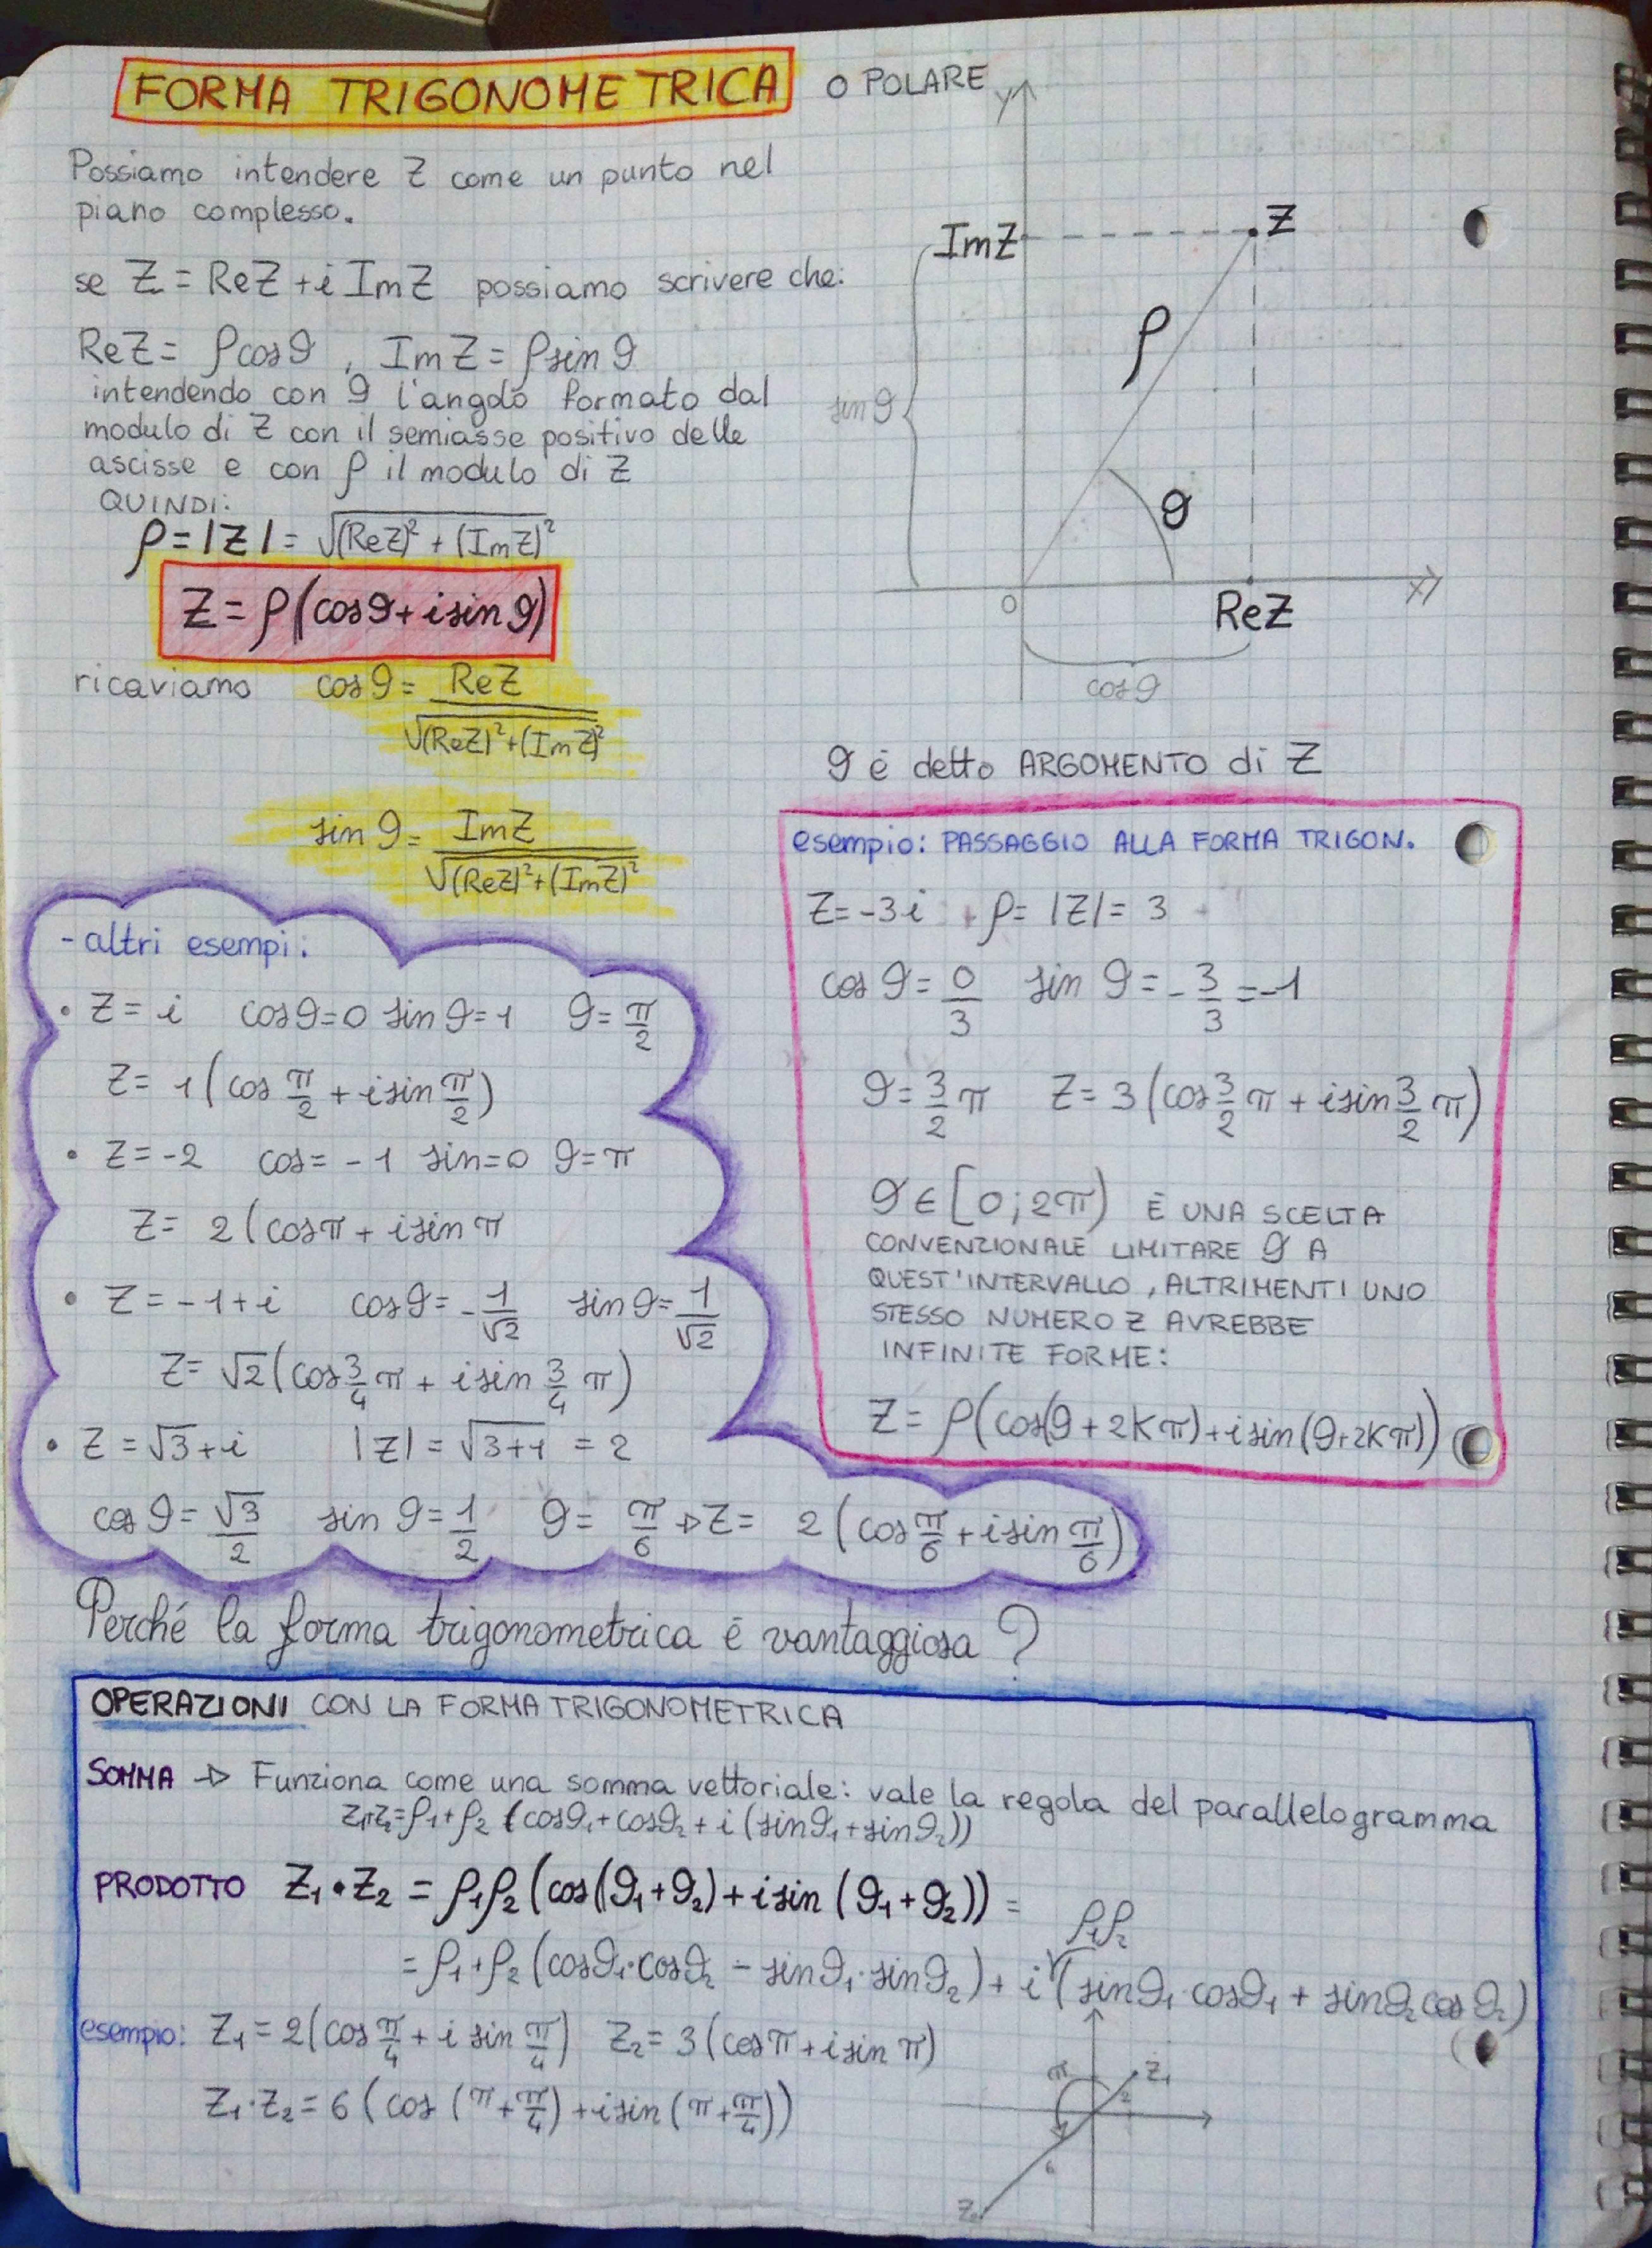 FORMA TRIGONOMETRICA O POLARE
Possiamo intendere Z come un punto nel
piano complesso.
se Z = ReZ + i ImZ possiamo scrivere che:
ReZ = ρcosϑ , ImZ = ρsinϑ
intendendo con ϑ l'angolo formato dal
modulo di Z con il semiasse positivo delle
ascisse e con ρ il modulo di Z
QUINDI:
ρ = |Z| = √(ReZ)² + (ImZ)²
Z = ρ(cosϑ + i sinϑ)
ricaviamo cosϑ = ReZ / √(ReZ)² + (ImZ)²
sinϑ = ImZ / √(ReZ)² + (ImZ)²
y
ImZ
Z
ρ
sinϑ
ϑ
O
ReZ
x
cosϑ
ϑ è detto ARGOMENTO di Z
esempio: PASSAGGIO ALLA FORMA TRIGON.
Z = -3i ρ = |Z| = 3
cosϑ = 0/3 sinϑ = -3/3 = -1
ϑ = 3/2 π Z = 3(cos 3/2 π + i sin 3/2 π)
ϑ ∈ [0; 2π) È UNA SCELTA
CONVENZIONALE LIMITARE ϑ A
QUEST'INTERVALLO, ALTRIMENTI UNO
STESSO NUMERO Z AVREBBE
INFINITE FORME:
Z = ρ(cos(ϑ + 2Kπ) + i sin(ϑ + 2Kπ))
- altri esempi:
• Z = i cosϑ = 0 sinϑ = 1 ϑ = π/2
Z = 1(cos π/2 + i sin π/2)
• Z = -2 cos = -1 sin = 0 ϑ = π
Z = 2(cosπ + i sin π
• Z = -1 + i cosϑ = -1/√2 sinϑ = 1/√2
Z = √2(cos 3/4 π + i sin 3/4 π)
• Z = √3 + i |Z| = √3+1 = 2
cosϑ = √3/2 sinϑ = 1/2 ϑ = π/6 → Z = 2(cos π/6 + i sin π/6)
Perché la forma trigonometrica è vantaggiosa?
OPERAZIONI CON LA FORMA TRIGONOMETRICA
SOMMA → Funziona come una somma vettoriale: vale la regola del parallelogramma
Z₁+Z₂ = ρ₁+ρ₂ (cosϑ₁ + cosϑ₂ + i(sinϑ₁ + sinϑ₂))
PRODOTTO Z₁•Z₂ = ρ₁ρ₂(cos(ϑ₁+ϑ₂) + i sin(ϑ₁+ϑ₂)) =
ρ₁ρ₂
= ρ₁+ρ₂(cosϑ₁·cosϑ₂ - sinϑ₁·sinϑ₂) + i(sinϑ₁·cosϑ₁ + sinϑ₂cosϑ₂)
esempio: Z₁ = 2(cos π/4 + i sin π/4) Z₂ = 3(cosπ + i sin π)
Z₁·Z₂ = 6(cos(π + π/4) + i sin(π + π/4))
π
Z₁
2
6